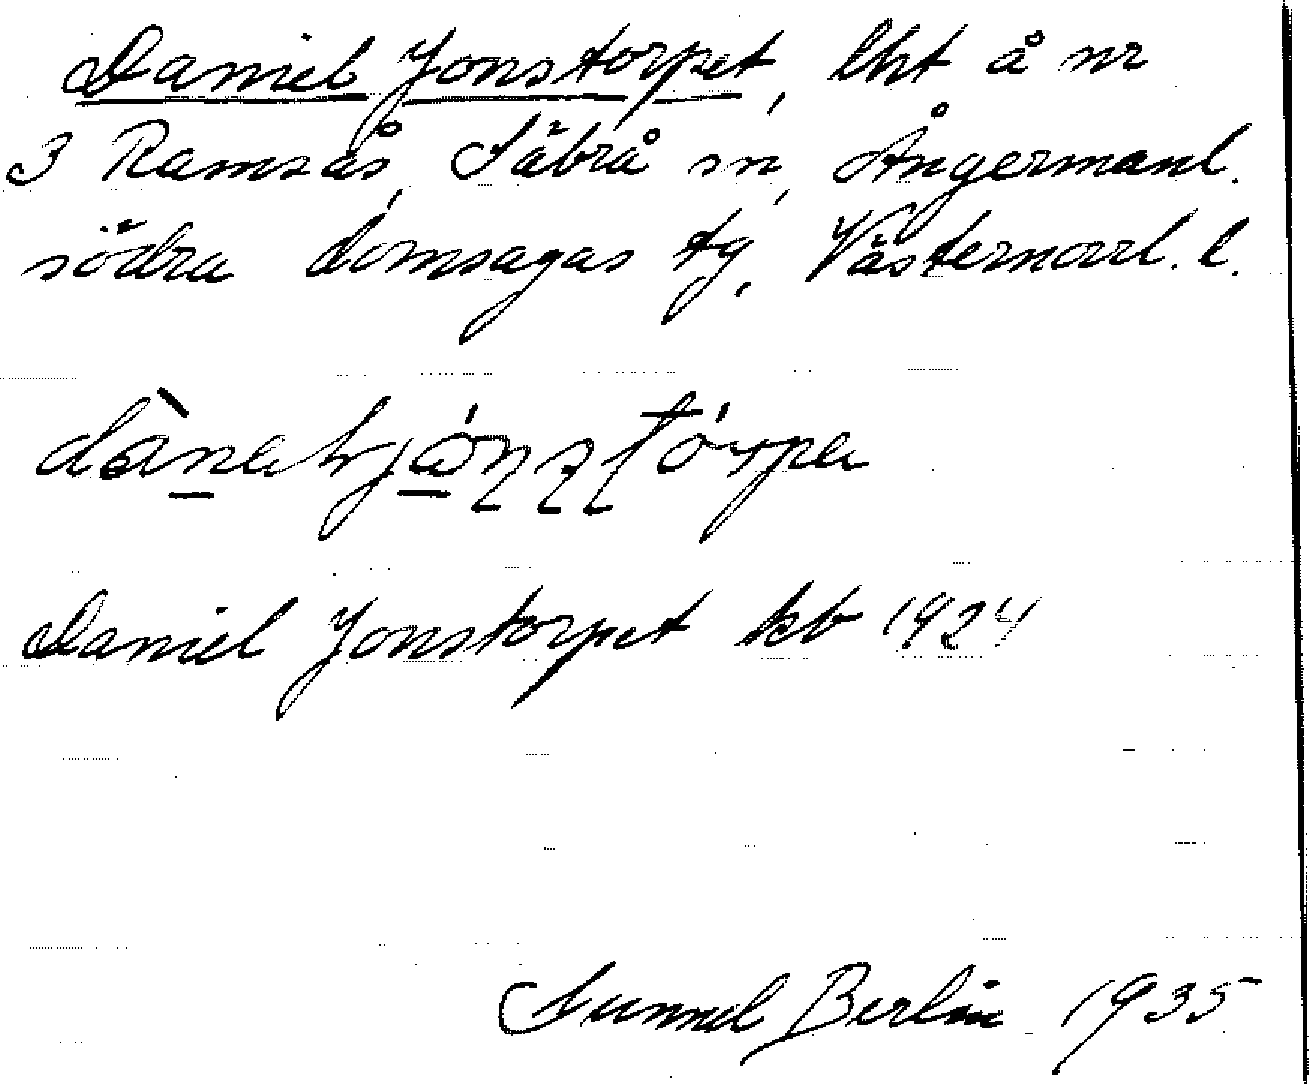 Daniel Jonstorpet, lht å nr
3 Ramsås, Säbrå sn, Ångermanl.
södra domsagas tg, Västernorrl. l.
Daniel Jonstorpet kb 1924
Gunnel Berlin 1935